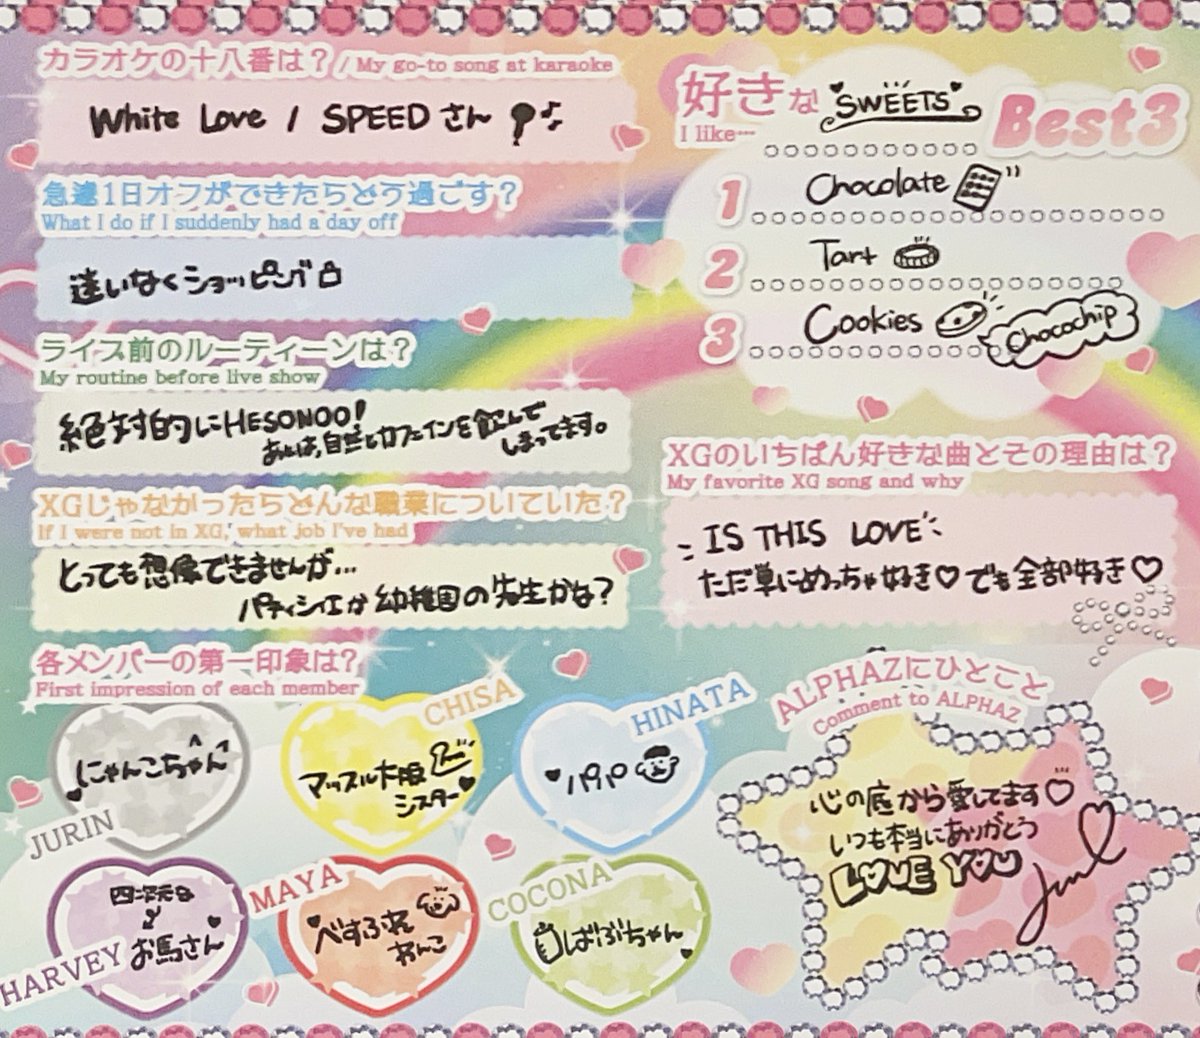 カラオケの十八番は? / My go-to song at karaoke
White Love / SPEEDさん
急遽1日オフができたらどう過ごす?
What I do if I suddenly had a day off
迷いなくショッピング
ライブ前のルーティーンは?
My routine before live show
絶対的にHESONOO!
あとは、自然とカフェインを飲んで
しまってます。
XGじゃなかったらどんな職業についていた?
If I were not in XG, what job I've had
とっても想像できませんが...
パティシエか幼稚園の先生かな?
各メンバーの第一印象は?
First impression of each member
JURIN
にゃんこちゃん
CHISA
マッスル大阪
シスター
HINATA
パパ
HARVEY
四次元
お馬さん
MAYA
べすふれ
わんこ
COCONA
ばぶちゃん
好きな SWEETS Best3
I like…
1 Chocolate
2 Tart
3 Cookies
Chocochip
XGのいちばん好きな曲とその理由は?
My favorite XG song and why
IS THIS LOVE
ただ単にめっちゃ好き♡でも全部好き♡
ALPHAZにひとこと
Comment to ALPHAZ
心の底から愛してます♡
いつも本当にありがとう
LOVE YOU